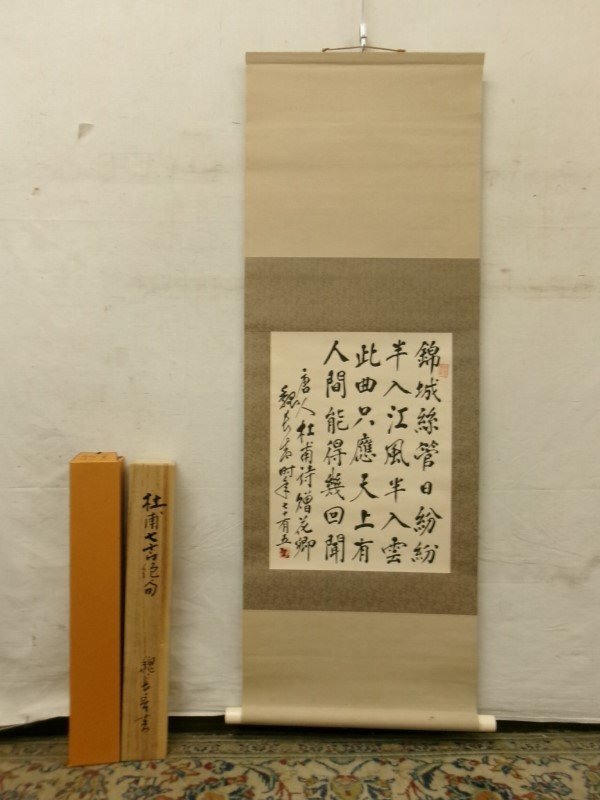 錦城絲管日紛紛
半入江風半入雲
此曲只應天上有
人間能得幾回聞
唐人杜甫詩贈花卿
魏長青時年七十有五
杜甫七言絕句
魏長青書